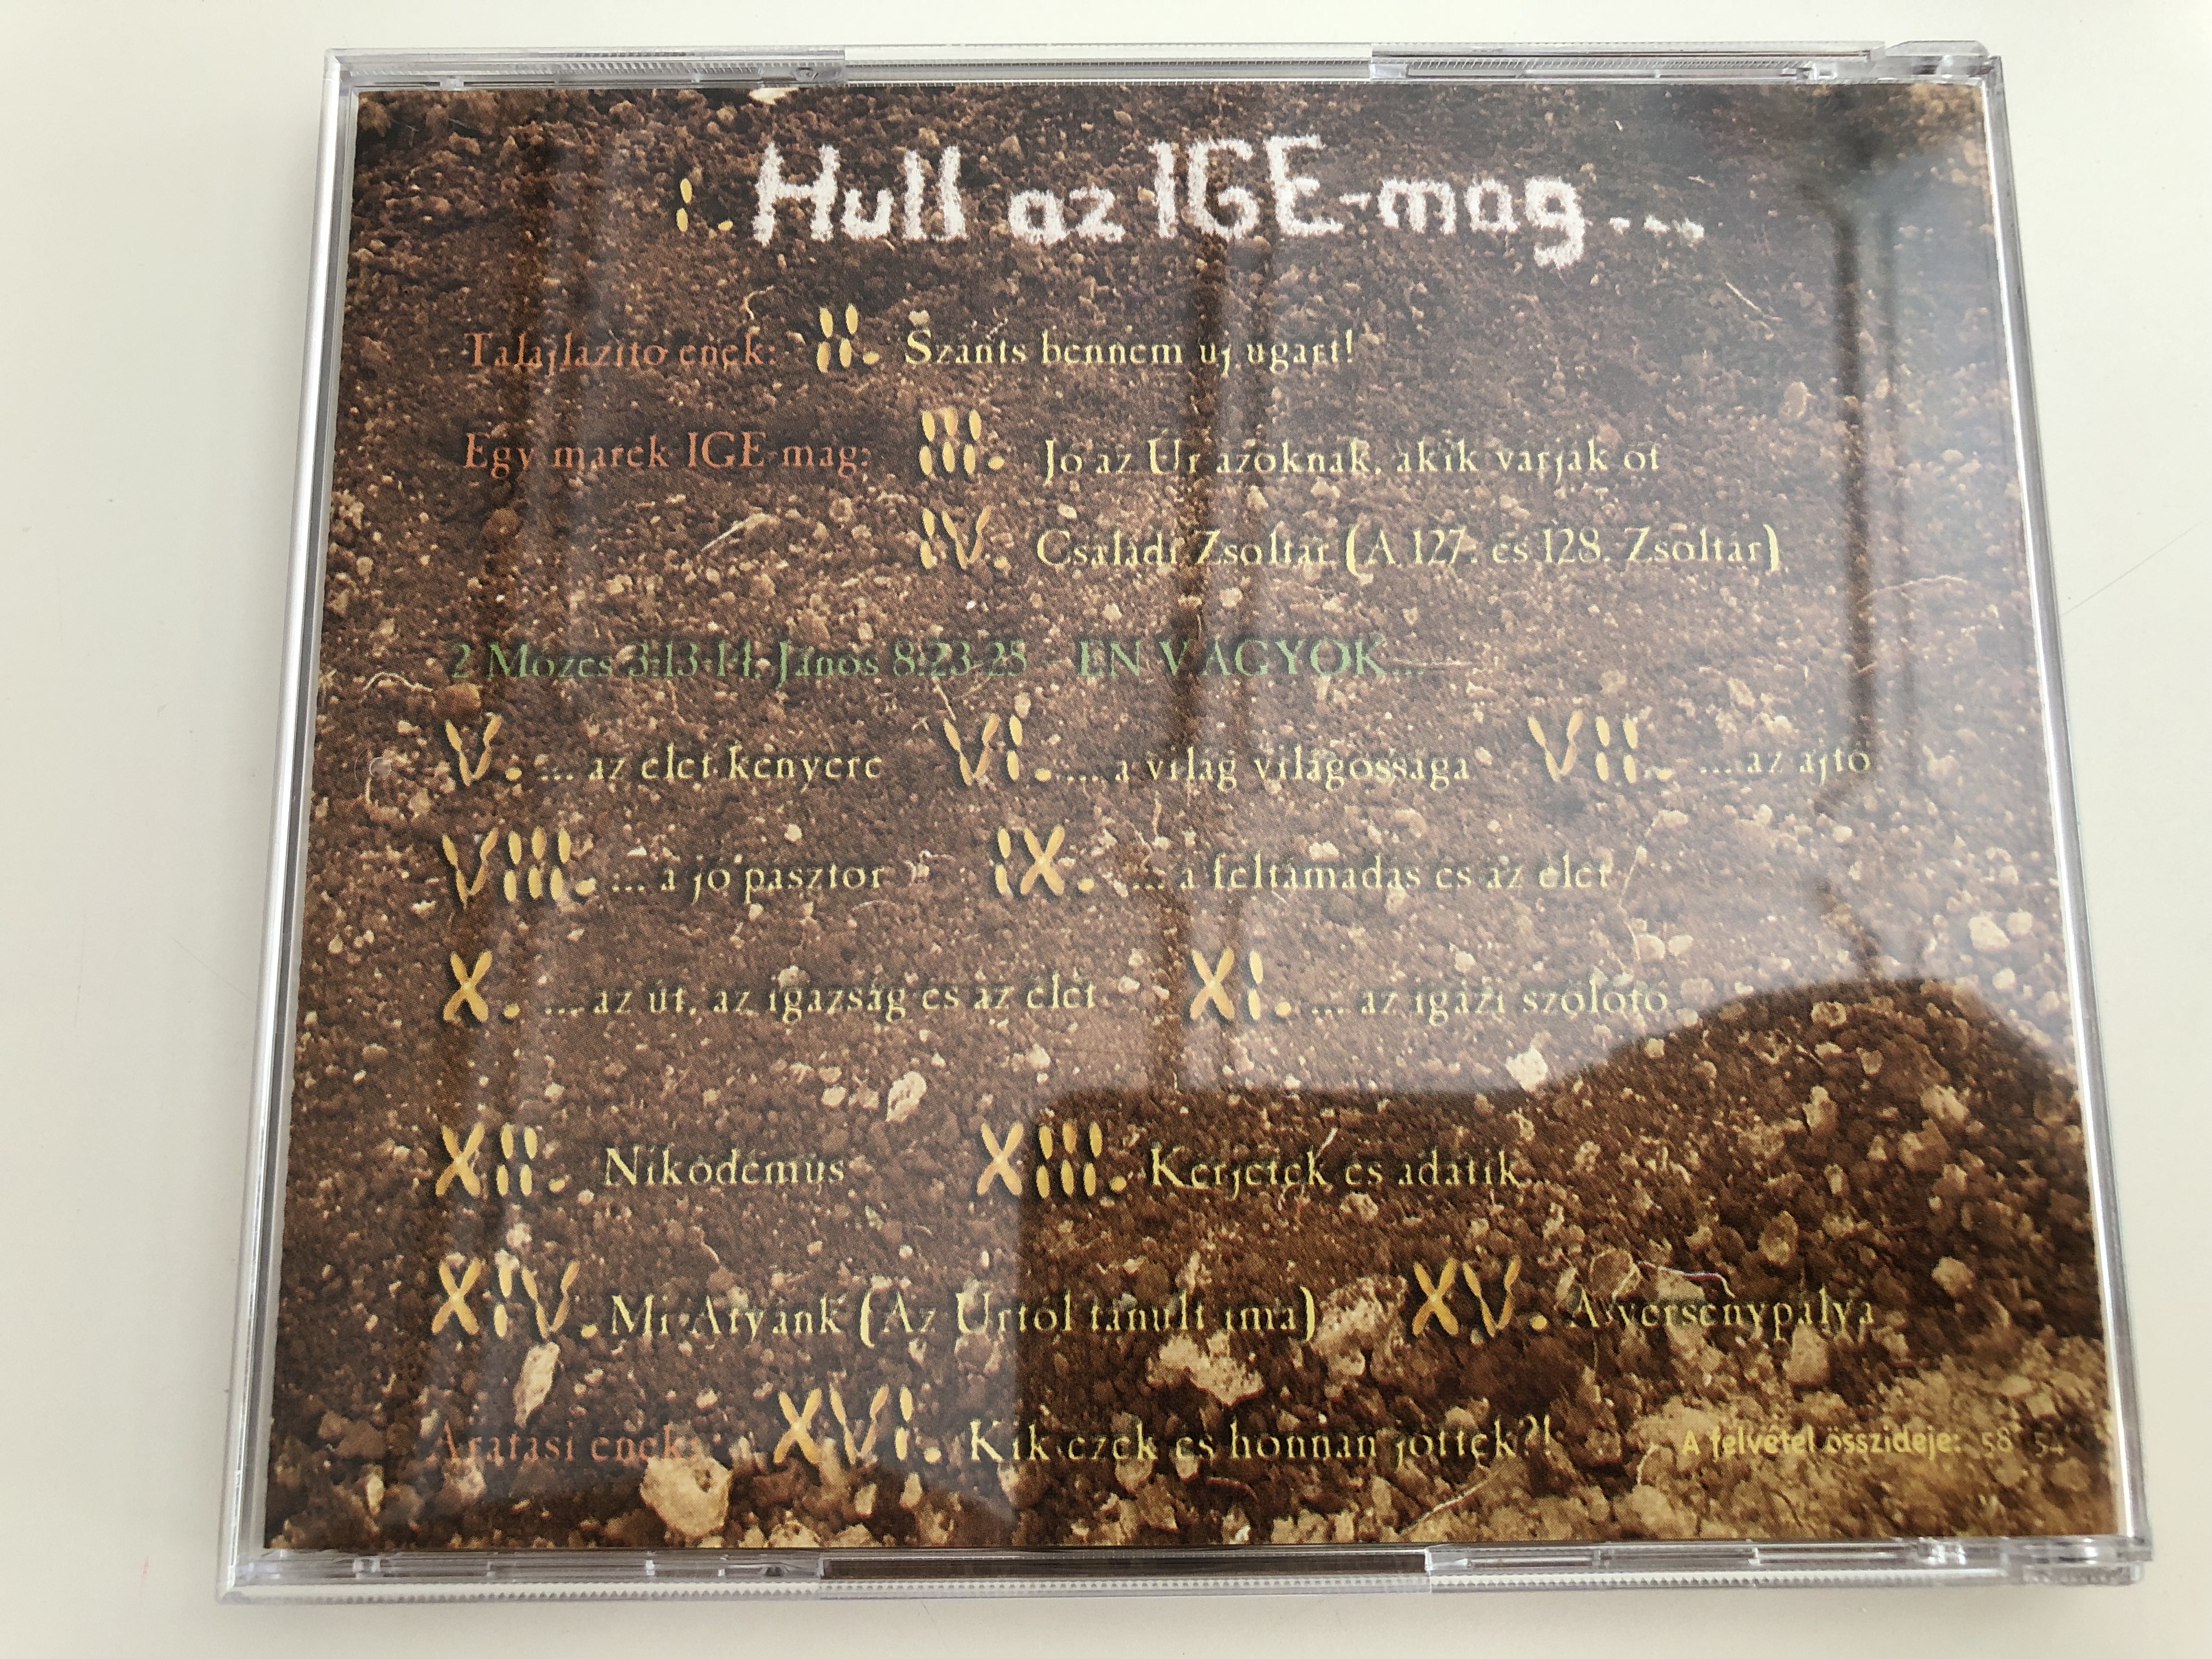 I. Hull az IGE-mag...
Talajlazító ének: II. Szánts bennem új ugart!
Egy marék IGE-mag: III. Jó az Úr azoknak, akik várják őt
IV. Családi Zsoltár (A 127. és 128. Zsoltár)
2 Mózes 3:13-14, János 8:23-25 - ÉN VAGYOK...
V. ... az élet kenyere VI. ... a világ világossága VII. ... az ajtó
VIII. ... a jó pásztor IX. ... a feltámadás és az élet
X. ... az út, az igazság és az élet XI. ... az igazi szőlőtő
XII. Nikodémus XIII. Kérjetek és adatik...
XIV. Mi Atyánk (Az Úrtól tanult ima) XV. A versenypálya
Aratási ének: XVI. Kik ezek és honnan jöttek?! A felvétel összideje: 58' 54"